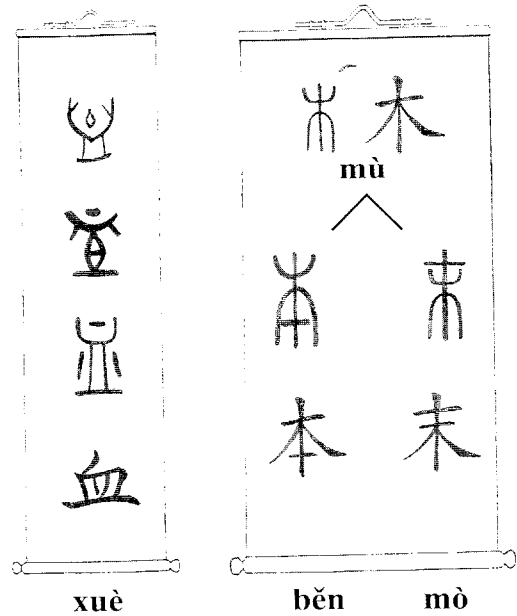 血
xuè
木
mù
本 末
běn mò